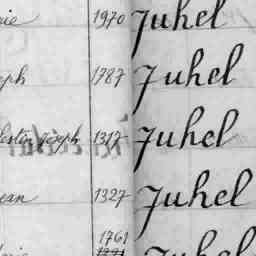 rie 1970 Juhel
eph 1787 Juhel
lestin Joseph 1317 Juhel
ean 1327 Juhel
1761
Juhel